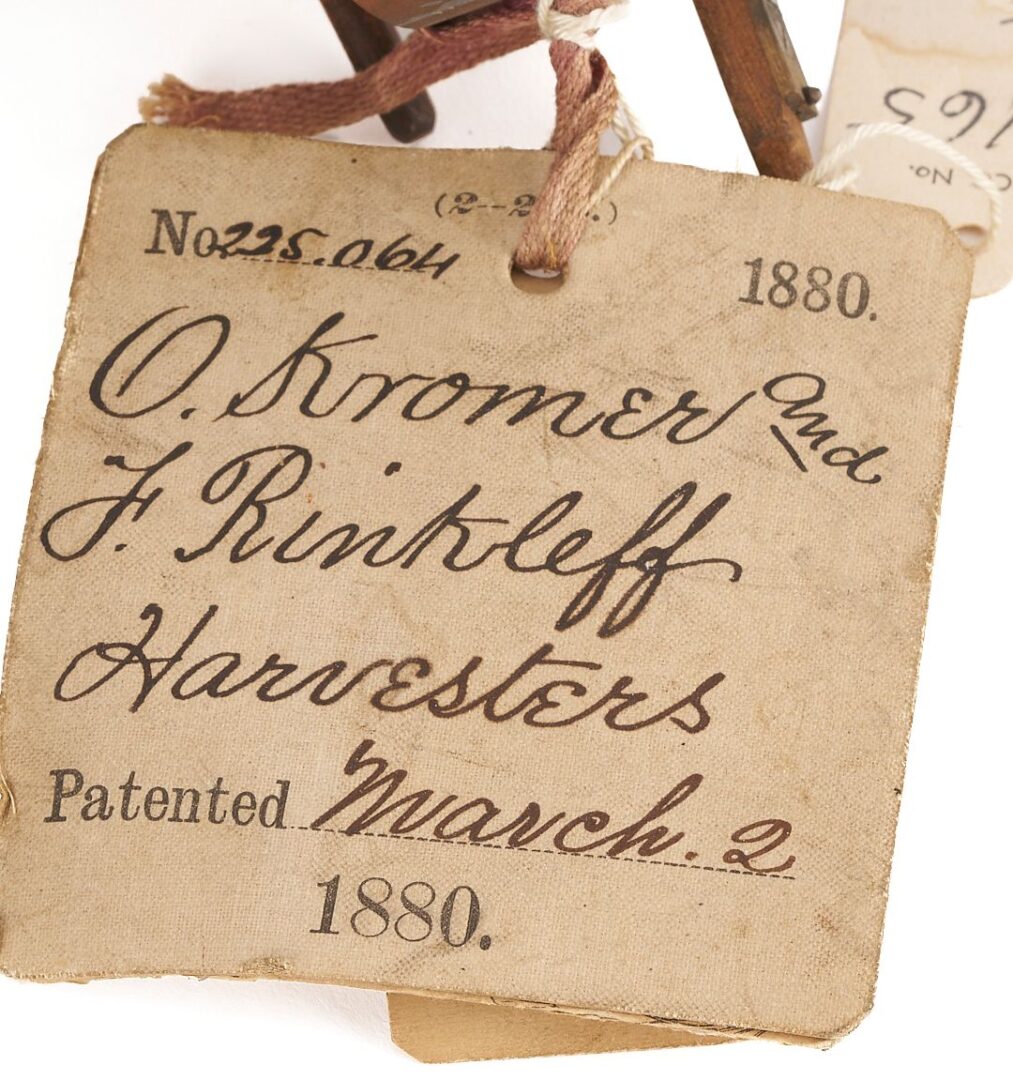 (2--2
No. 225.064 1880.
O. Kromer and
F. Rinkleff
Harvesters
Patented March. 2
1880.
165
No.